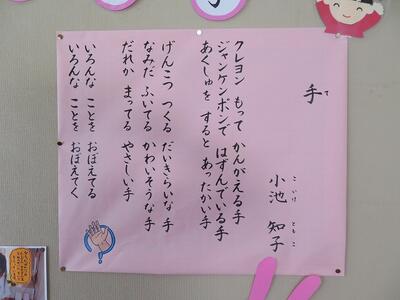 手
て
小池 知子
こいけ ともこ
クレヨン もって かんがえる手
ジャンケンポンで はずんでいる手
あくしゅを すると あったかい手
げんこつ つくる だいきらいな 手
なみだ ふいてる かわいそうな 手
だれか まってる やさしい手
いろんな ことを おぼえてる
いろんな ことを おぼえてく